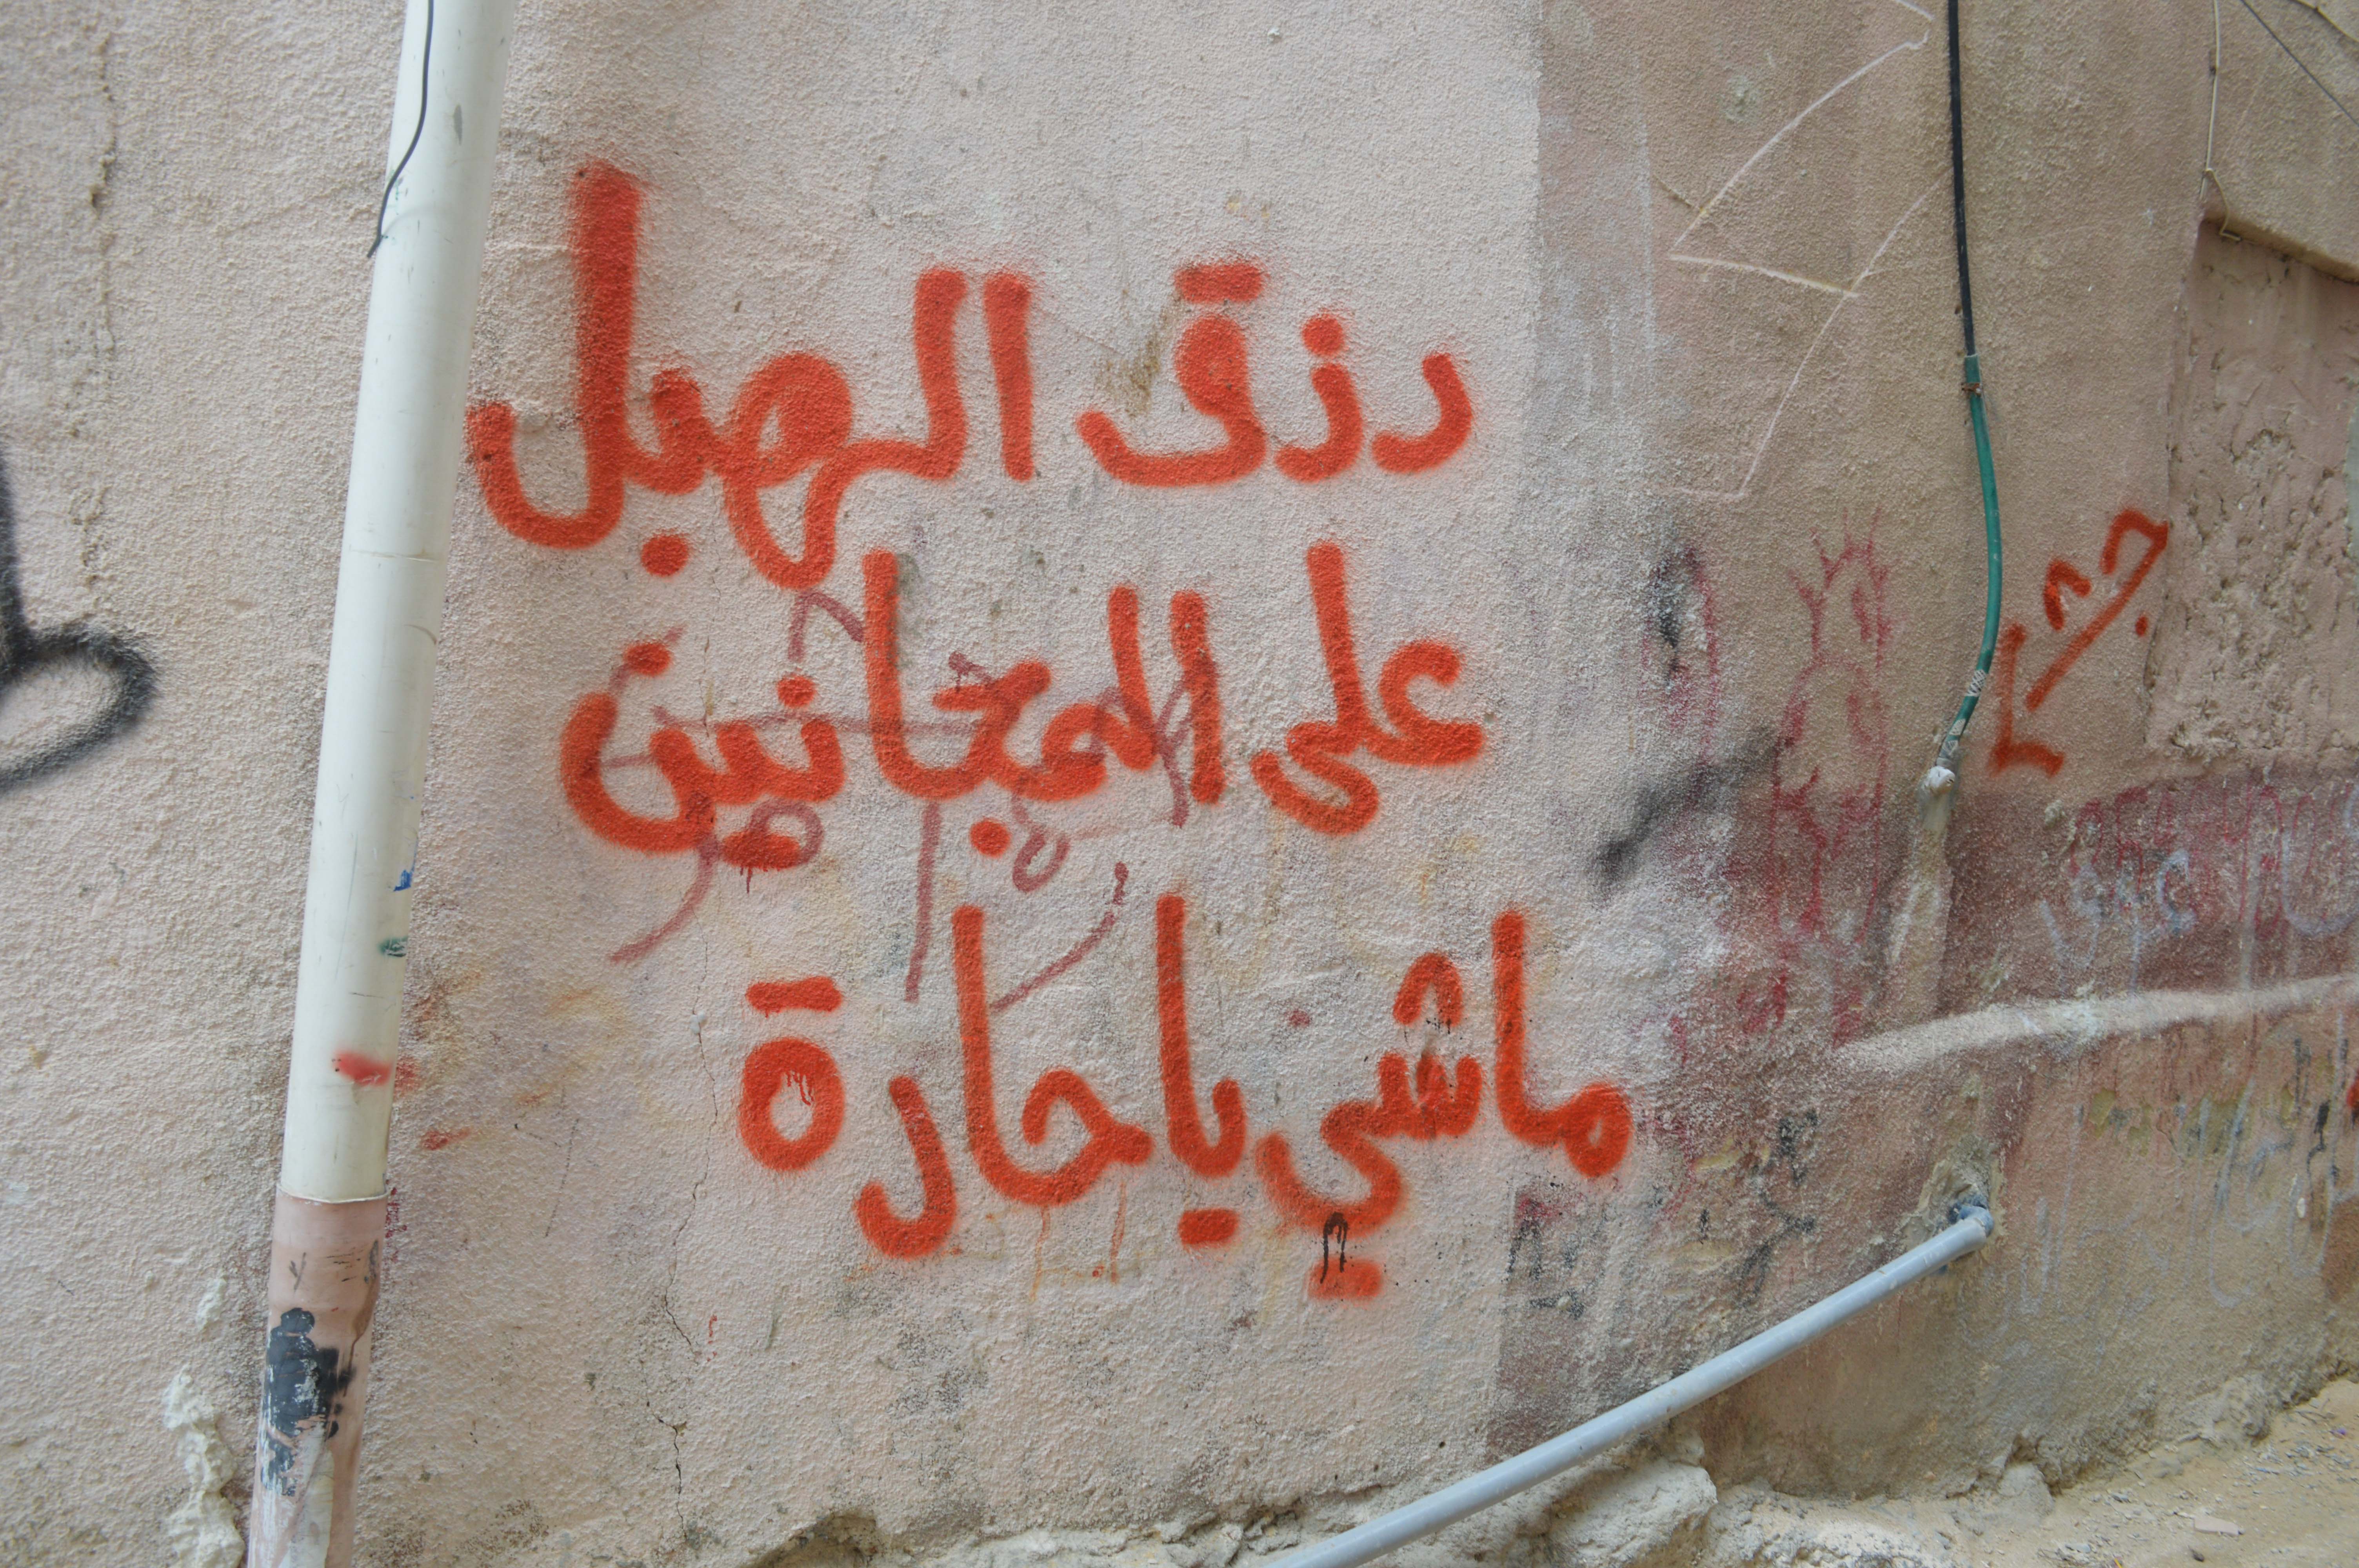 رزق الهبل
على المجانين
ماشي يا حارة